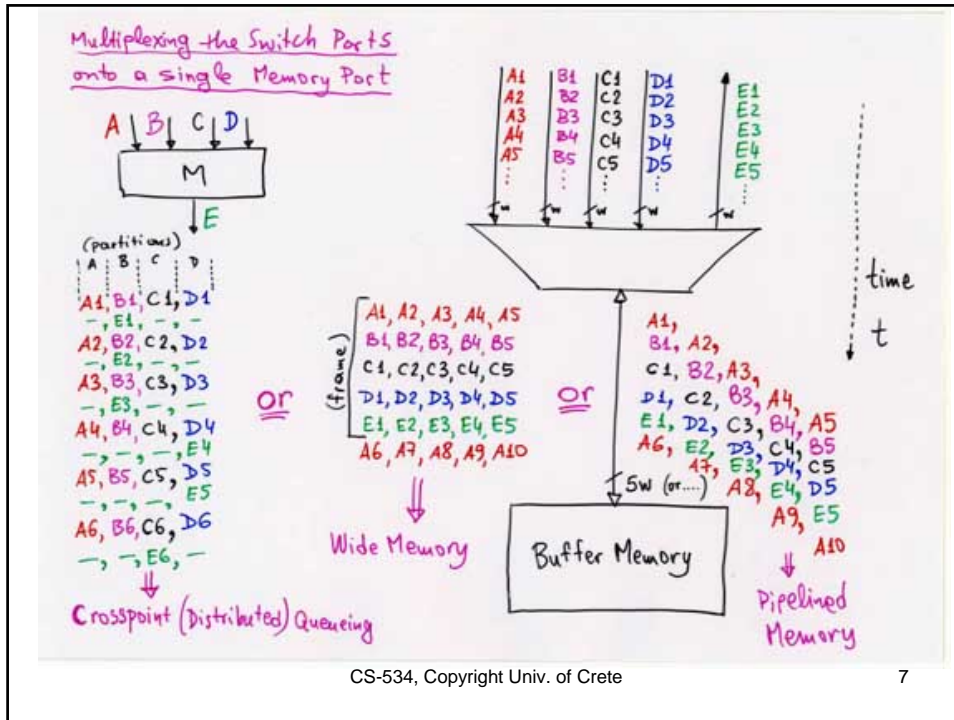 Multiplexing the Switch Ports
onto a single Memory Port
A B C D
M
E
(partitions)
A B C D
A1, B1, C1, D1
–, E1, –, –
A2, B2, C2, D2
–, E2, –, –
A3, B3, C3, D3
–, E3, –, –
A4, B4, C4, D4
–, –, –, E4
A5, B5, C5, D5
–, –, –, E5
A6, B6, C6, D6
–, –, E6, –
Crosspoint (Distributed) Queueing
or
(frame)
A1, A2, A3, A4, A5
B1, B2, B3, B4, B5
C1, C2, C3, C4, C5
D1, D2, D3, D4, D5
E1, E2, E3, E4, E5
A6, A7, A8, A9, A10
Wide Memory
or
A1 B1 C1 D1 E1
A2 B2 C2 D2 E2
A3 B3 C3 D3 E3
A4 B4 C4 D4 E4
A5 B5 C5 D5 E5
⋮ ⋮ ⋮ ⋮ ⋮
w w w w w
time
t
A1,
B1, A2,
C1, B2, A3,
D1, C2, B3, A4,
E1, D2, C3, B4, A5
A6, E2, D3, C4, B5
A7, E3, D4, C5
A8, E4, D5
A9, E5
A10
5w (or....)
Buffer Memory
Pipelined
Memory
CS-534, Copyright Univ. of Crete
7